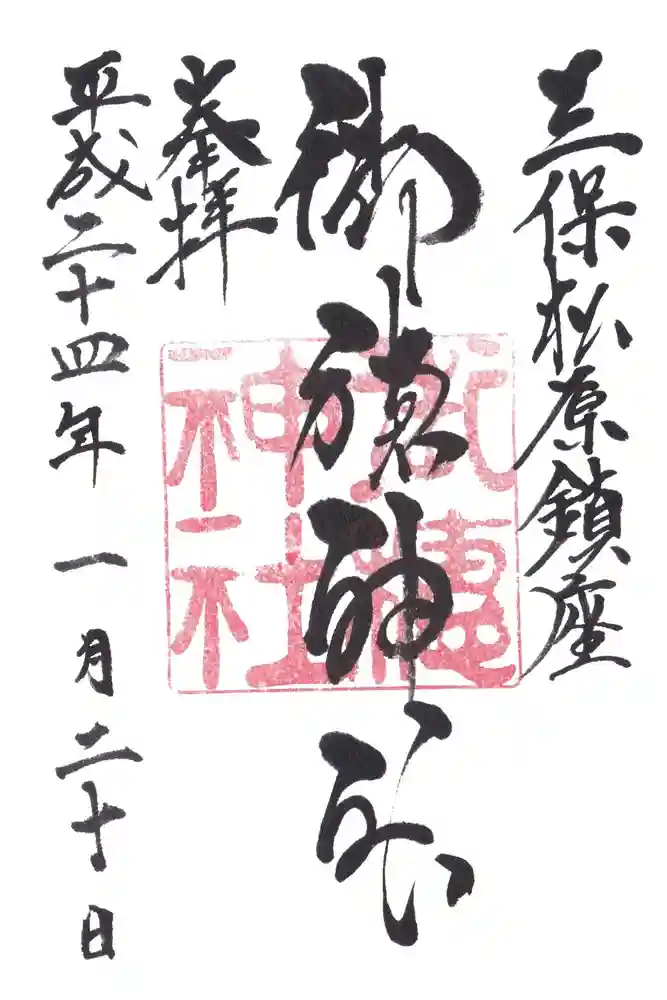 三保松原鎮座
御穗神社
奉拝
平成二十四年 一月二十日
御穗神社